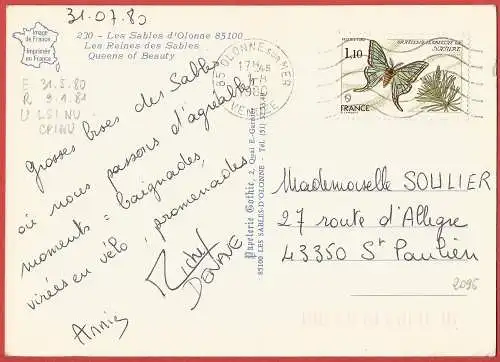 31.07.80
Image
de France
Imprimée
en France
230 - Les Sables d'Olonne 85100
Les Reines des Sables
Queens of Beauty
E 31.5.80
R 9.4.81
U LSI NU
85 OLONNE sur MER
17H45
1980
VENDEE
1,10
FRANCE
Grosses bises des Sables
où nous passons d'agréables
moments : baignades,
virées en vélo, promenades.
Annie
Papeterie Gothic, 2, Quai E.-Garnier
85100 LES SABLES-D'OLONNE - Tél. (51)
Mademoiselle SOULIER
27 route d'Allègre
43350 St Paulien
2095